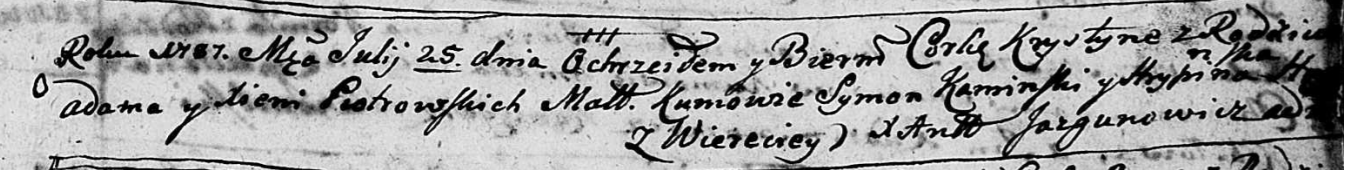 Roku 1787. Mca Julij 25. dnia Ochrzciłem y Bierm Corkę Krystynę z Rodzicow
adama y Xieni Piotrowskich Małt. Kumowie Symon Kaminski y Hrypina
z Wiereciey) X Antt Jazgunowicz